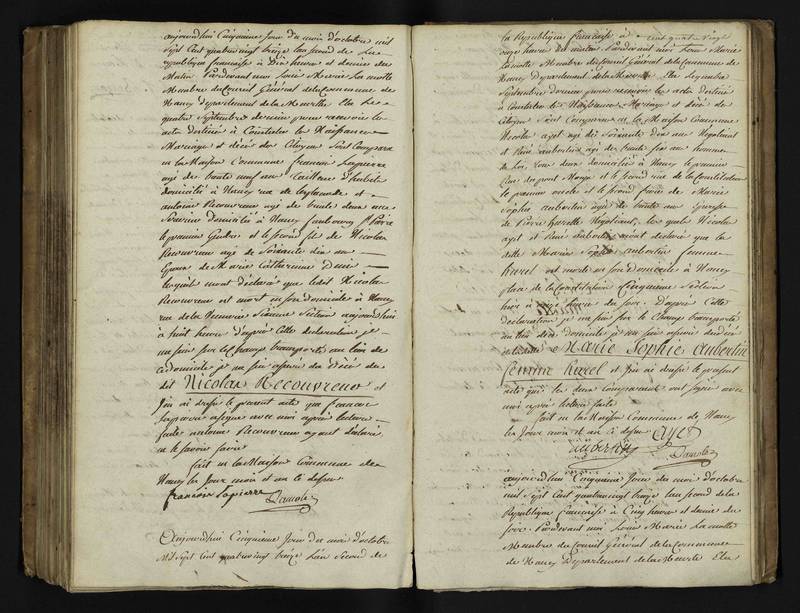 aujourdhui Cinquieme Jour du mois d'octobre mil
Sept Cent quatrevingt treize l'an second de La
republique française à Dix heures et demie du
Matin Pardevant moi Louis Marie La motte
Membre du Conseil Général de la Commune de
Nancy Departement de la Meurthe Elu Le
quatre Septembre dernier pour recevoir les
acte destinés à Constater la Naissance
Mariage et décès des Citoyens Sont Comparu
en la Maison Commune françois Lapierre
agé de trente neuf ans tailleur d'habits
domicilié à Nancy rue de et
antoine Recouvreur agé de trente deux ans
domicilié à Nancy faubourg St Pierre
le premier Gendre et le second fils de Nicolas
Recouvreur agé de Soixante dix ans
Epoux de Marie Catherine
Lesquels m'ont déclaré que ledit Nicolas
Recouvreur est mort en son domicile à Nancy
rue de la Section aujourdhui
à huit heures d'après cette declaration je
me suis sur le champ transporté au lieu de
ce domicile je me suis assuré du Décès du
dit Nicolas Recouvreur et
J'en ai dressé le présent acte que françois
Lapierre a signé avec moi après lecture
faite antoine Recouvreur ayant déclaré
ne le savoir faire
fait en la Maison Commune de
Nancy les Jour mois et an ci dessus
francois Lapierre
Aujourdhui Cinquieme Jour du mois d'octobre
Mil Sept Cent quatrevingt treize l'an Second de
la République francaise à
onze heures du matin Pardevant moi Louis Marie
La motte Membre du Conseil Général de la Commune de
Nancy Departement de la Meurthe Elu le quatre
Septembre dernier pour recevoir les acte destinés
à Constater les Naissances Mariage et décès des
Citoyens Sont Comparu en la Maison Commune
Nicolas ayet agé de Soixante dix ans Negotiant
et René aubertin agé de trente six ans homme
de Loi, tous deux domiciliés à Nancy le premier
rue du pont Mouja et le second place de la Constitution
le premier oncle et le second frere de Marie
Sophie aubertin agé de trente ans Epouse
de Pierre Negotiant, les quels Nicolas
ayet et René aubertin m'ont declaré que la
ditte Marie Sophie aubertin femme
est morte en son domicile à Nancy
place de la Constitution Cinquieme Section
hier à heures du soir. D'après Cette
declaration je me suis sur le Champ transporté
au lieu de ce domicile je me suis assuré du décès
de laditte Marie Sophie Aubertin
femme et J'en ai dressé le présent
acte que les deux comparants ont signé avec
moi après lecture faite
fait en la Maison Commune de Nancy
les Jour mois et an ci dessus ayet
aubertin
aujourdhui Cinquieme Jour du mois d'octobre
mil Sept Cent quatrevingt treize l'an second de la
République française à Cinq heures et demie du
soir Pardevant moi Louis Marie La motte
Membre du Conseil Général de la Commune
de Nancy Departement de la Meurthe Elu